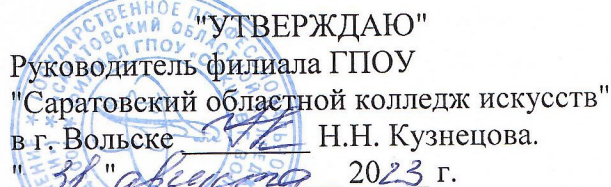 "УТВЕРЖДАЮ"
Руководитель филиала ГПОУ
"Саратовский областной колледж искусств"
в г. Вольске Н.Н. Кузнецова.
"31" августа 2023 г.